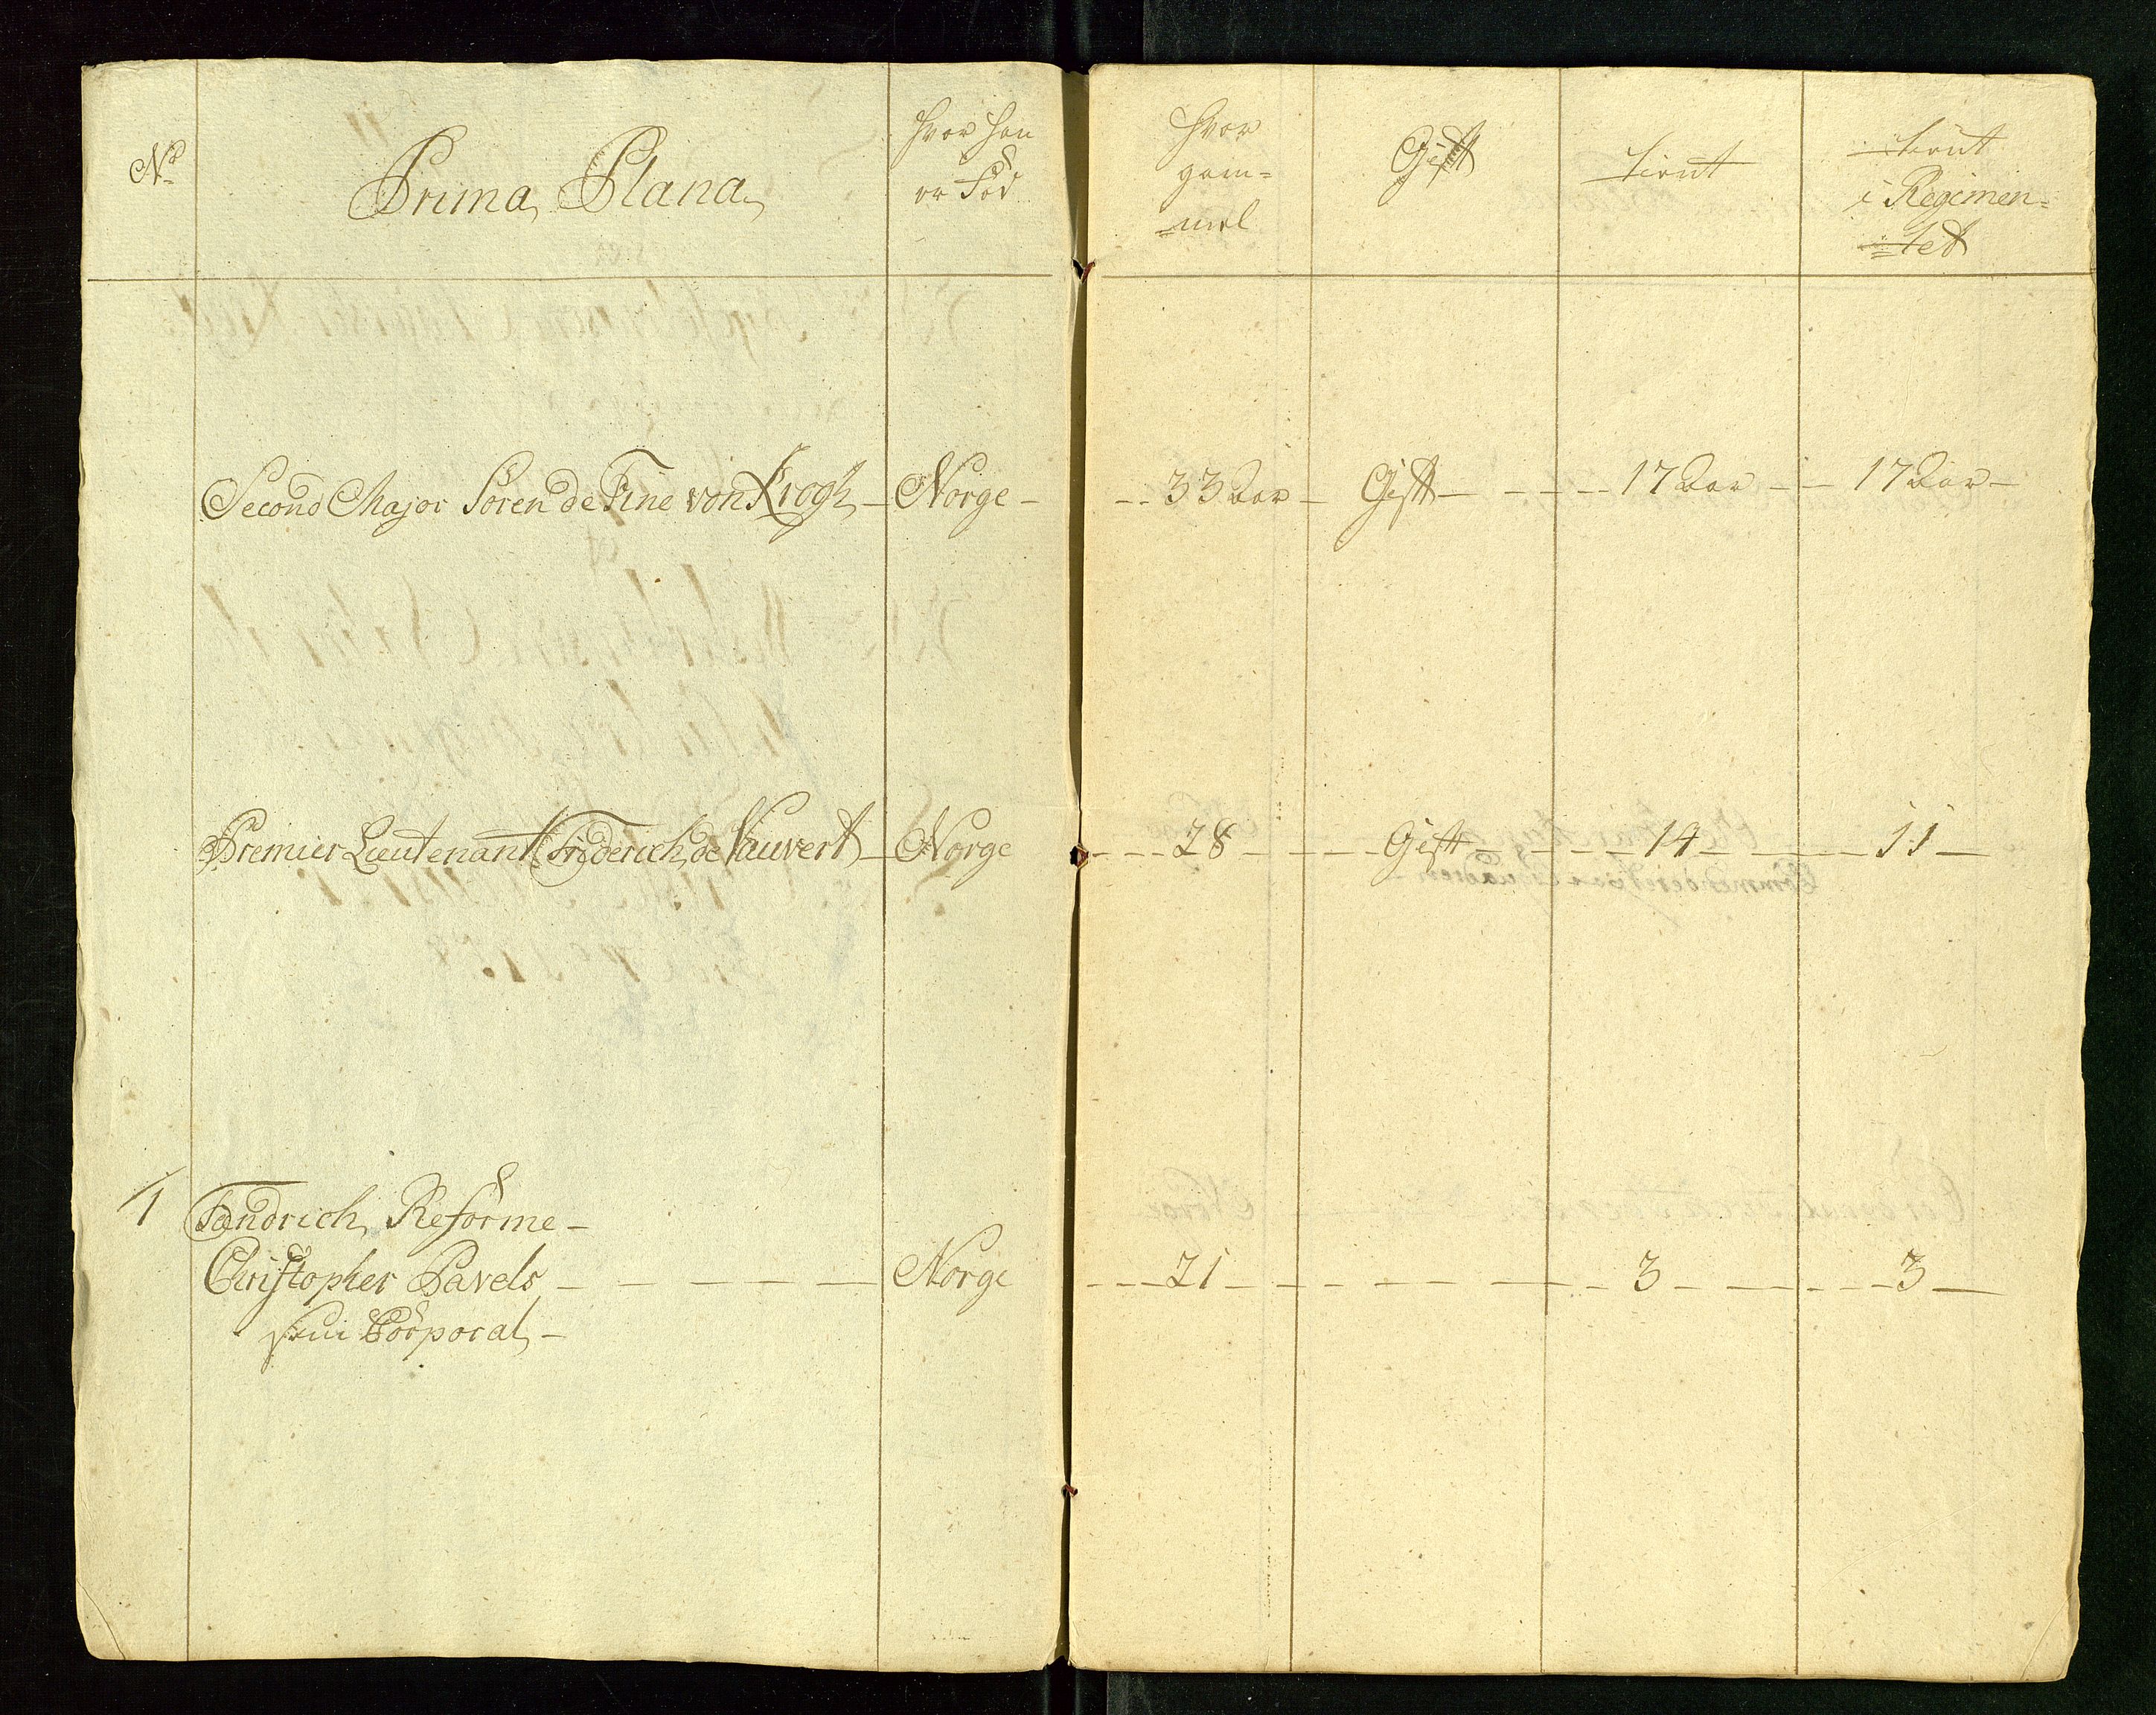 No
Prima Plana
hvor han
er Fød
hvor
gam=
=mel
Gift
tient
tient
i Regimen=
=tet
Second Major Sören de Fine von Krogh — Norge — 33 Aar — Gift — 17 Aar — 17 Aar —
Premier Lieutenant Friderich de Vauvert — Norge — 28 — Gift — 14 — 11 —
1 Fændrich Reforme —
Christopher Pavels — Norge — 21 — 3 — 3 —
Corporal —